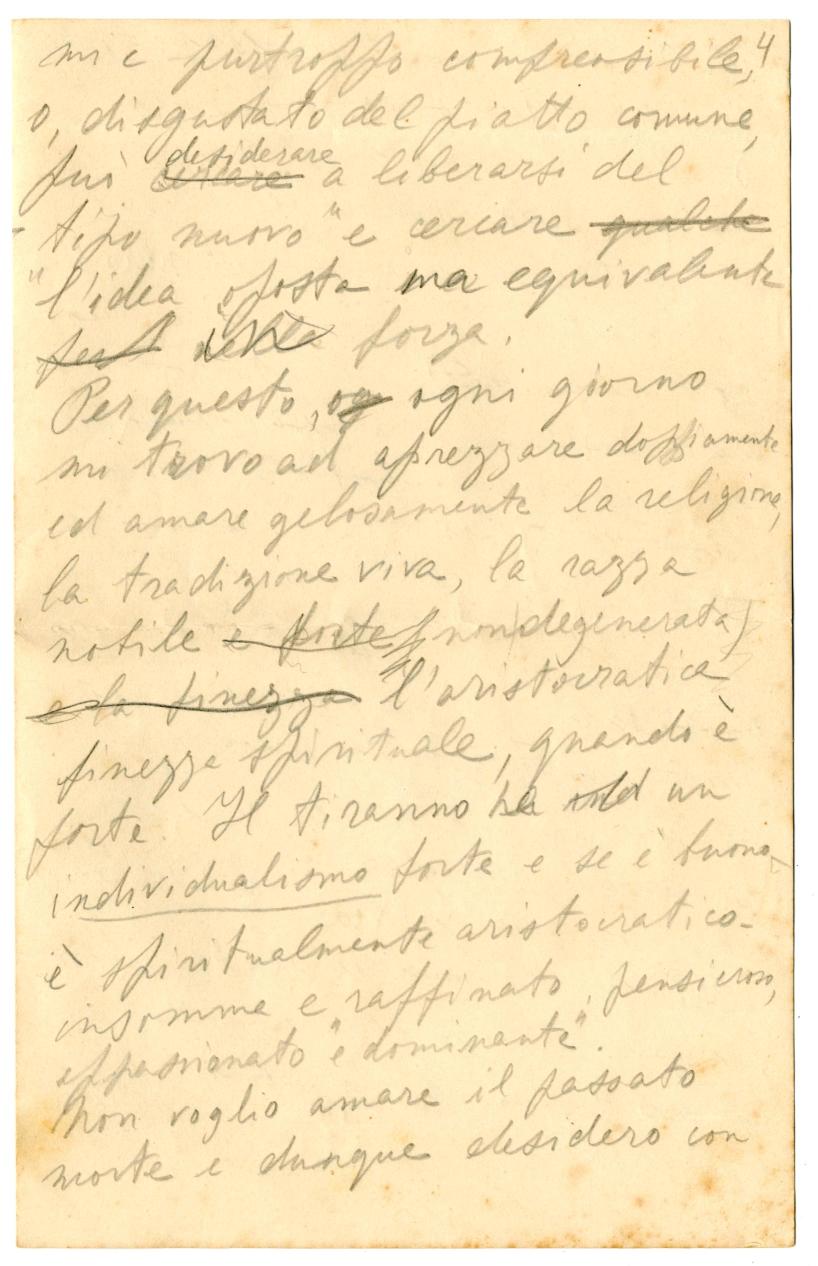 mi è purtroppo comprensibile, 4
o, disgustato del piatto comune,
può desiderare cercare a liberarsi del
tipo nuovo" e cercare qualche
"l'idea oposta ma equivalente
per nella forza.
Per questo, og ogni giorno
mi trovo ad aprezzare doppiamente
ed amare gelosamente la religione,
la tradizione viva, la razza
nobile e forte (non degenerata)
e la finezza l'aristocratica
finezza spirituale, quando è
forte. Il tiranno ha un
individualismo forte e se è buono
è spiritualmente aristocratico -
insomma e raffinato, pensieroso,
appassionato "e dominante".
Non voglio amare il passato
morte e dunque desidero con